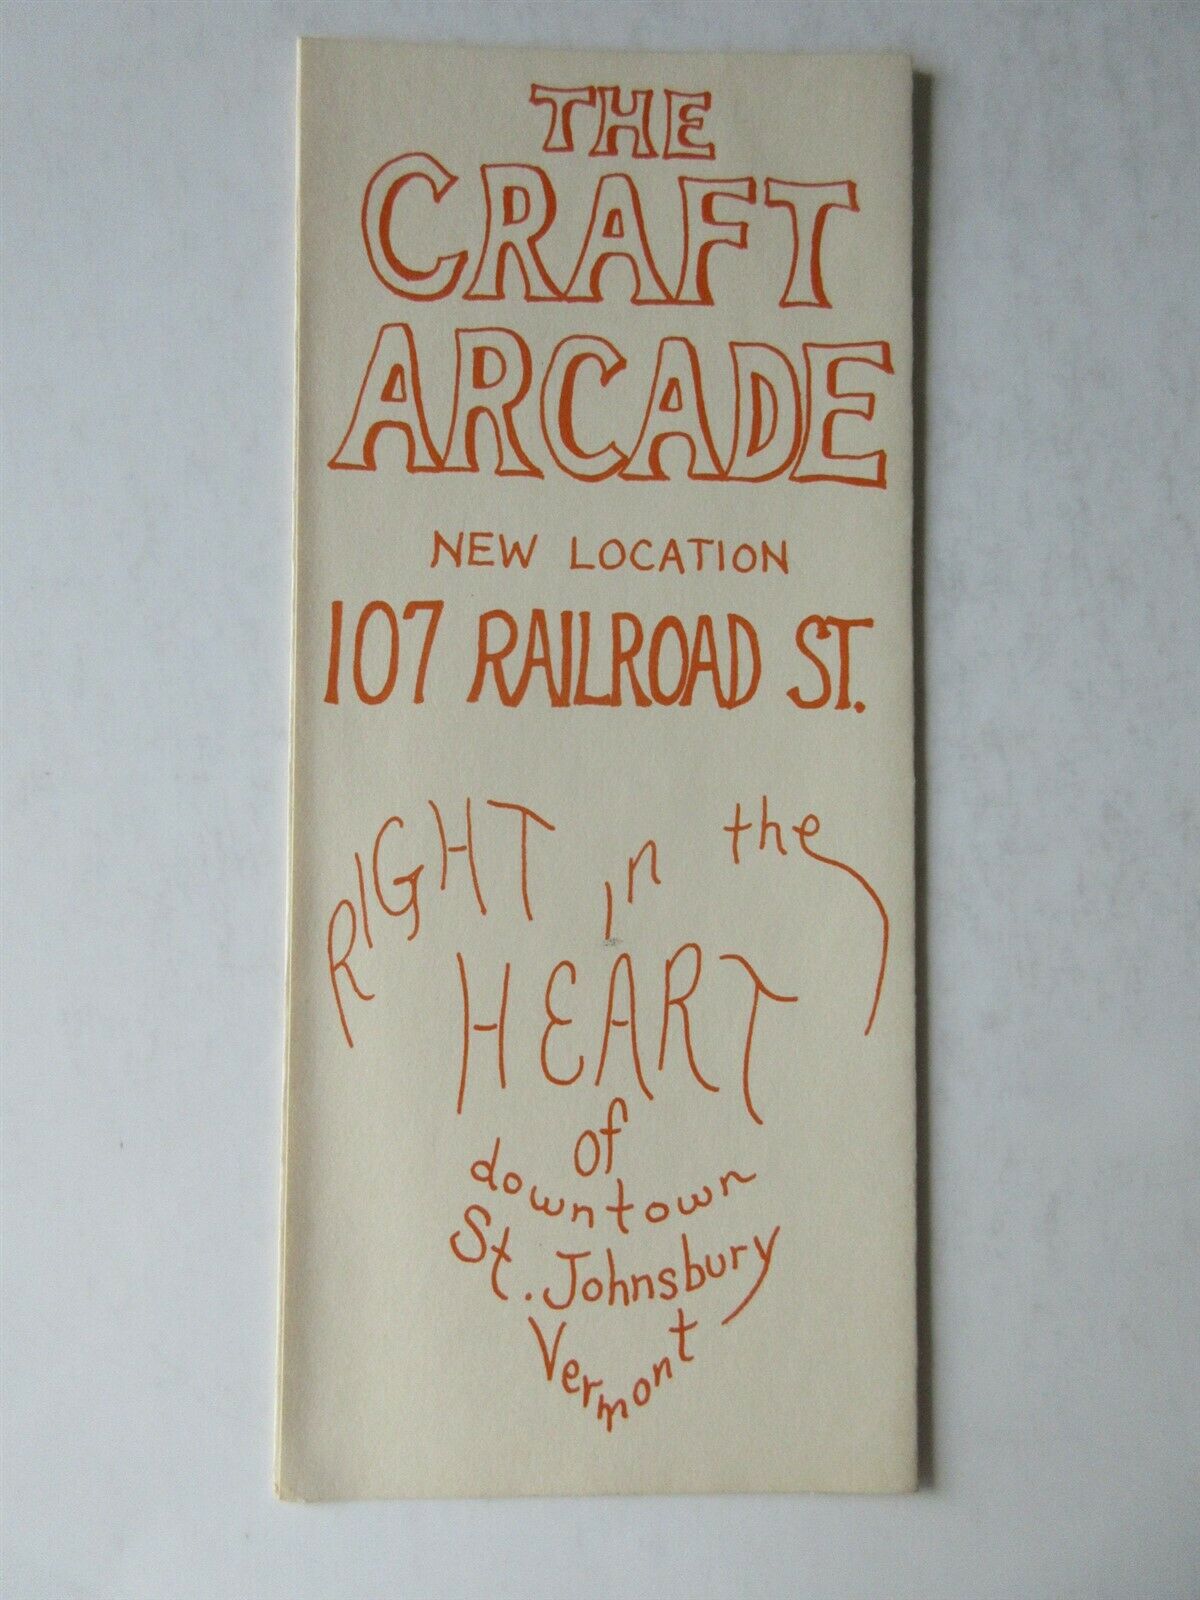 THE
CRAFT
ARCADE
NEW LOCATION
107 RAILROAD ST.
RIGHT in the
HEART
of
downtown
St. Johnsbury
Vermont